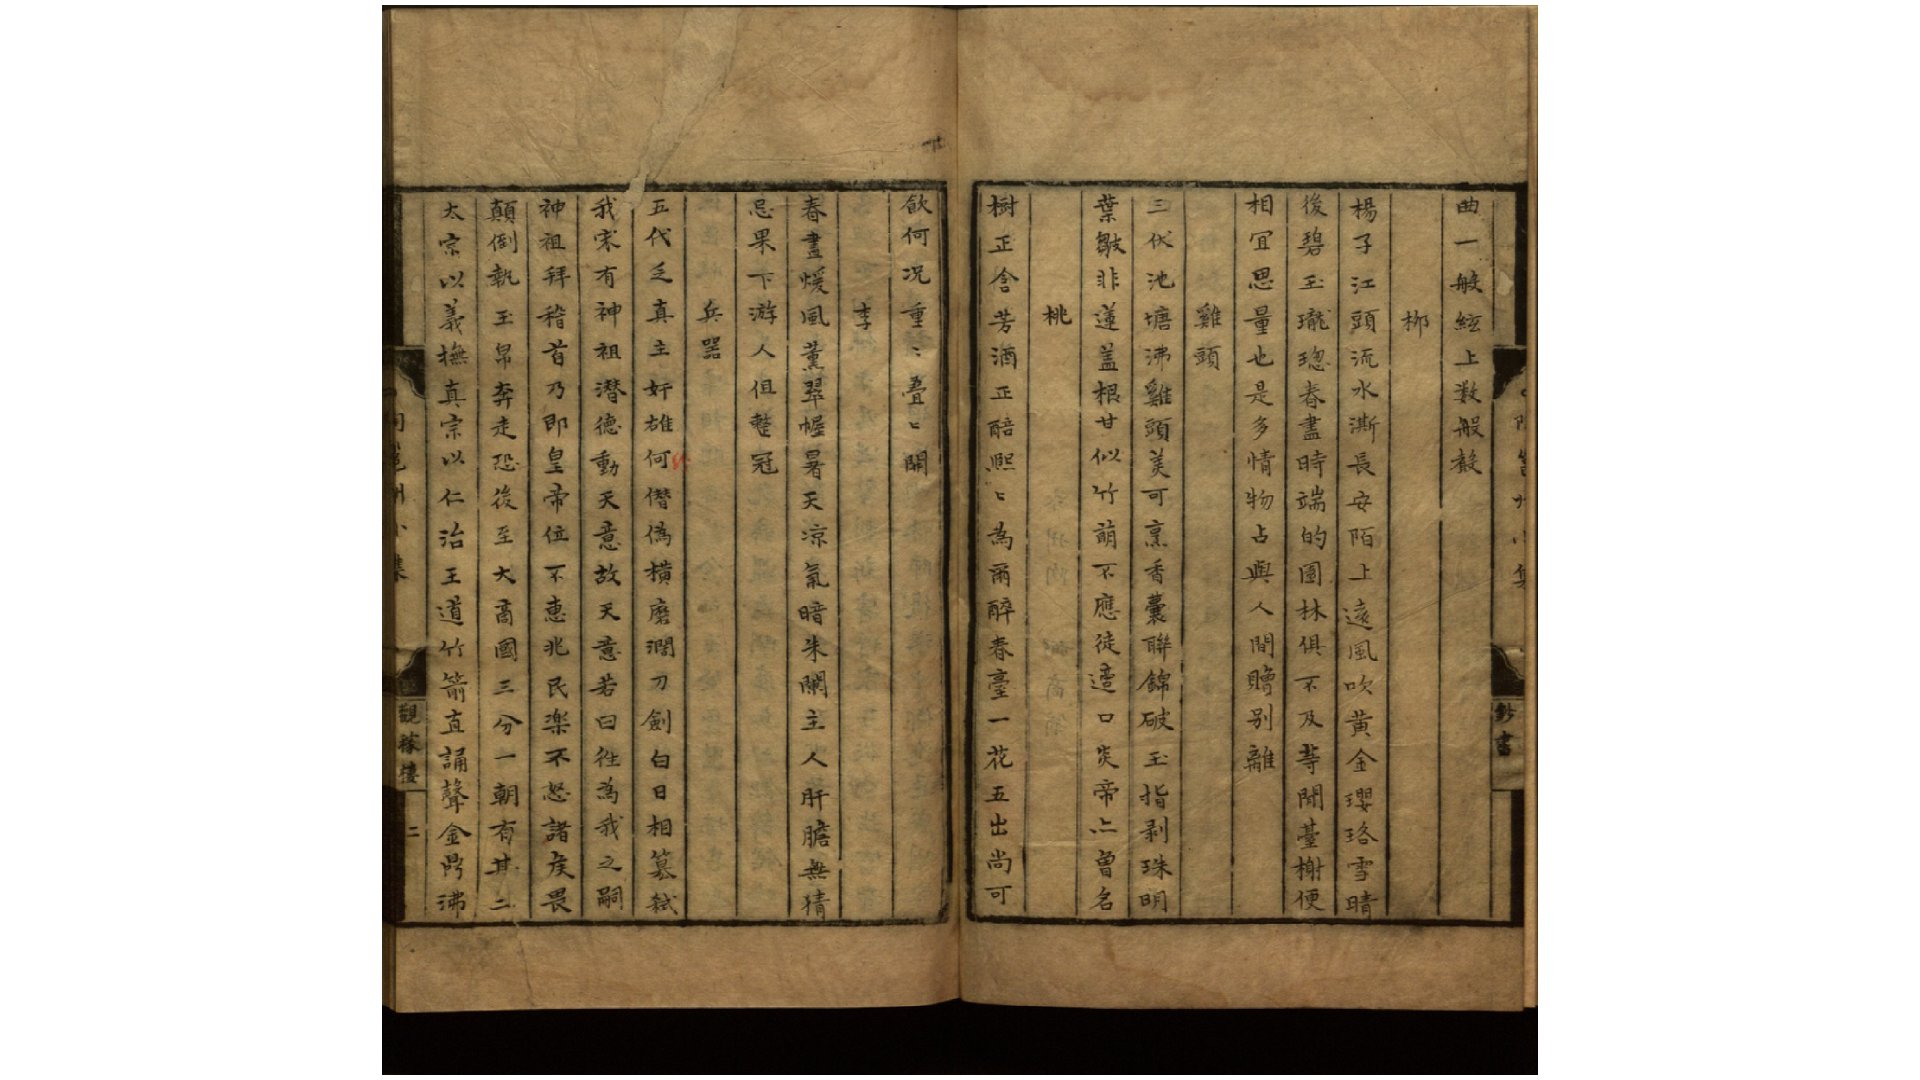 曲一般絃上数般聲
柳
楊子江頭流水澌長安陌上遠風吹黄金瓔珞雪晴
後碧玉瓏璁春盡時端的園林俱不及等閒臺榭便
相宜思量也是多情物占與人間贈别離
雞頭
三伏池塘沸雞頭美可烹香囊聯錦破玉指剥珠明
葉皺非蓮盖根甘似竹萌不應徒適口炎帝亦曽名
桃
樹正含芳酒正醅熙〻為爾醉春臺一花五出尚可
飲何况重〻疊〻開
李
春晝煖風薰翠幄暑天凉氣暗朱闌主人肝膽無猜
忌果下游人但整冠
兵器
五代乏真主奸雄何僭偽横磨濶刀劍白日相篡弒
我宋有神祖潜德動天意故天意若曰徃為我之嗣
神祖拜稽首乃即皇帝位不惠兆民楽不怒諸矦畏
顛倒執玉帛奔走恐後至大啇國三分一朝有其二
太宗以義撫真宗以仁治王道竹箭直誦聲金鼎沸
觀稼樓
二
鈔書